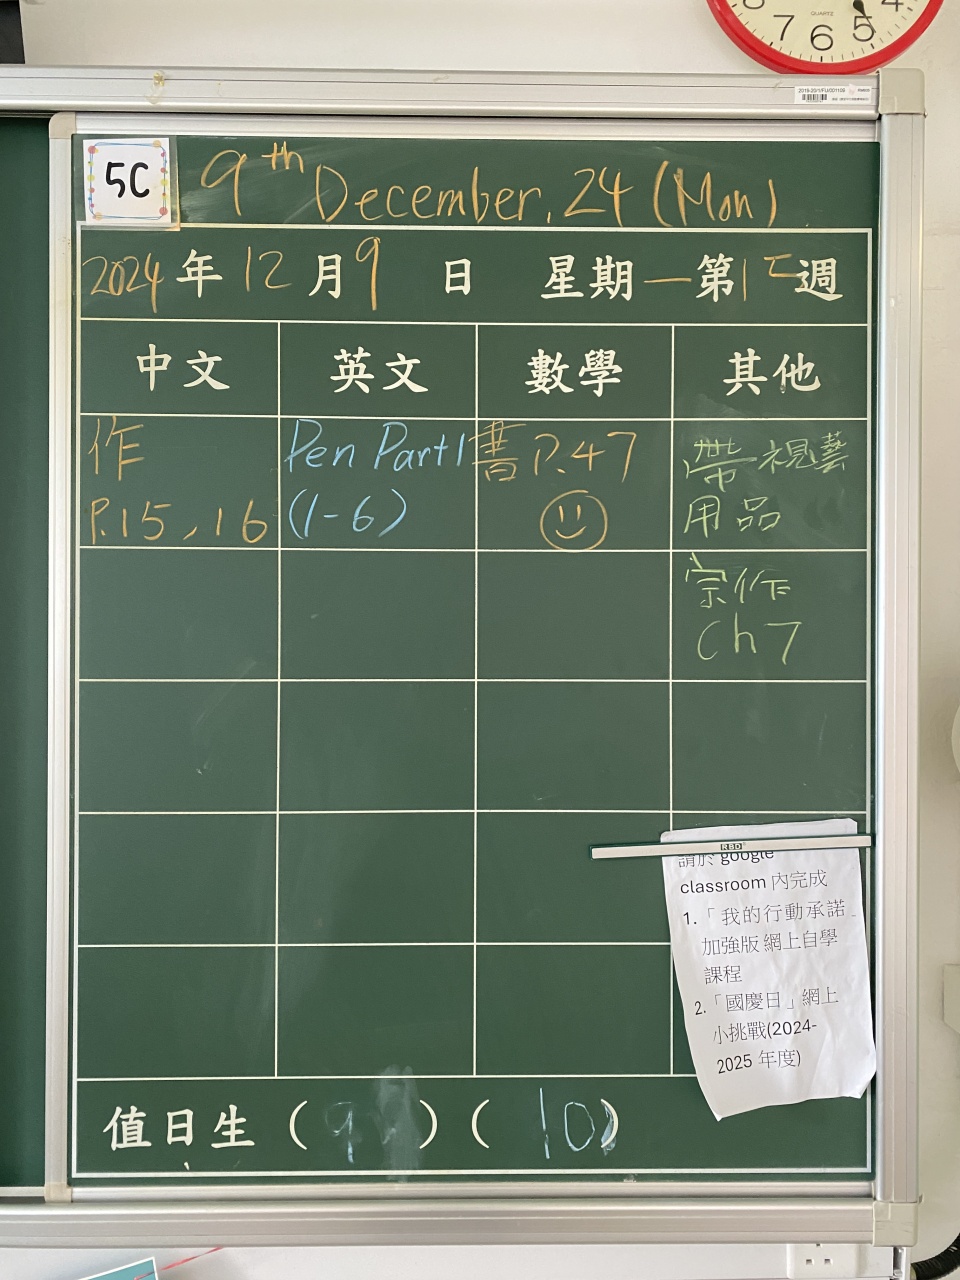 QUARTZ
4
7 6 5
5C
9th December, 24 (Mon)
2024年12月9日 星期一第15週
中文 英文 數學 其他
作
P.15, 16
Pen Part 1
(1-6)
書 P.47
帶視藝
用品
宗作
Ch 7
RBD
請於 google
classroom 內完成
1.「我的行動承諾」
加強版 網上自學
課程
2.「國慶日」網上
小挑戰(2024-
2025 年度)
值日生 (9) (10)